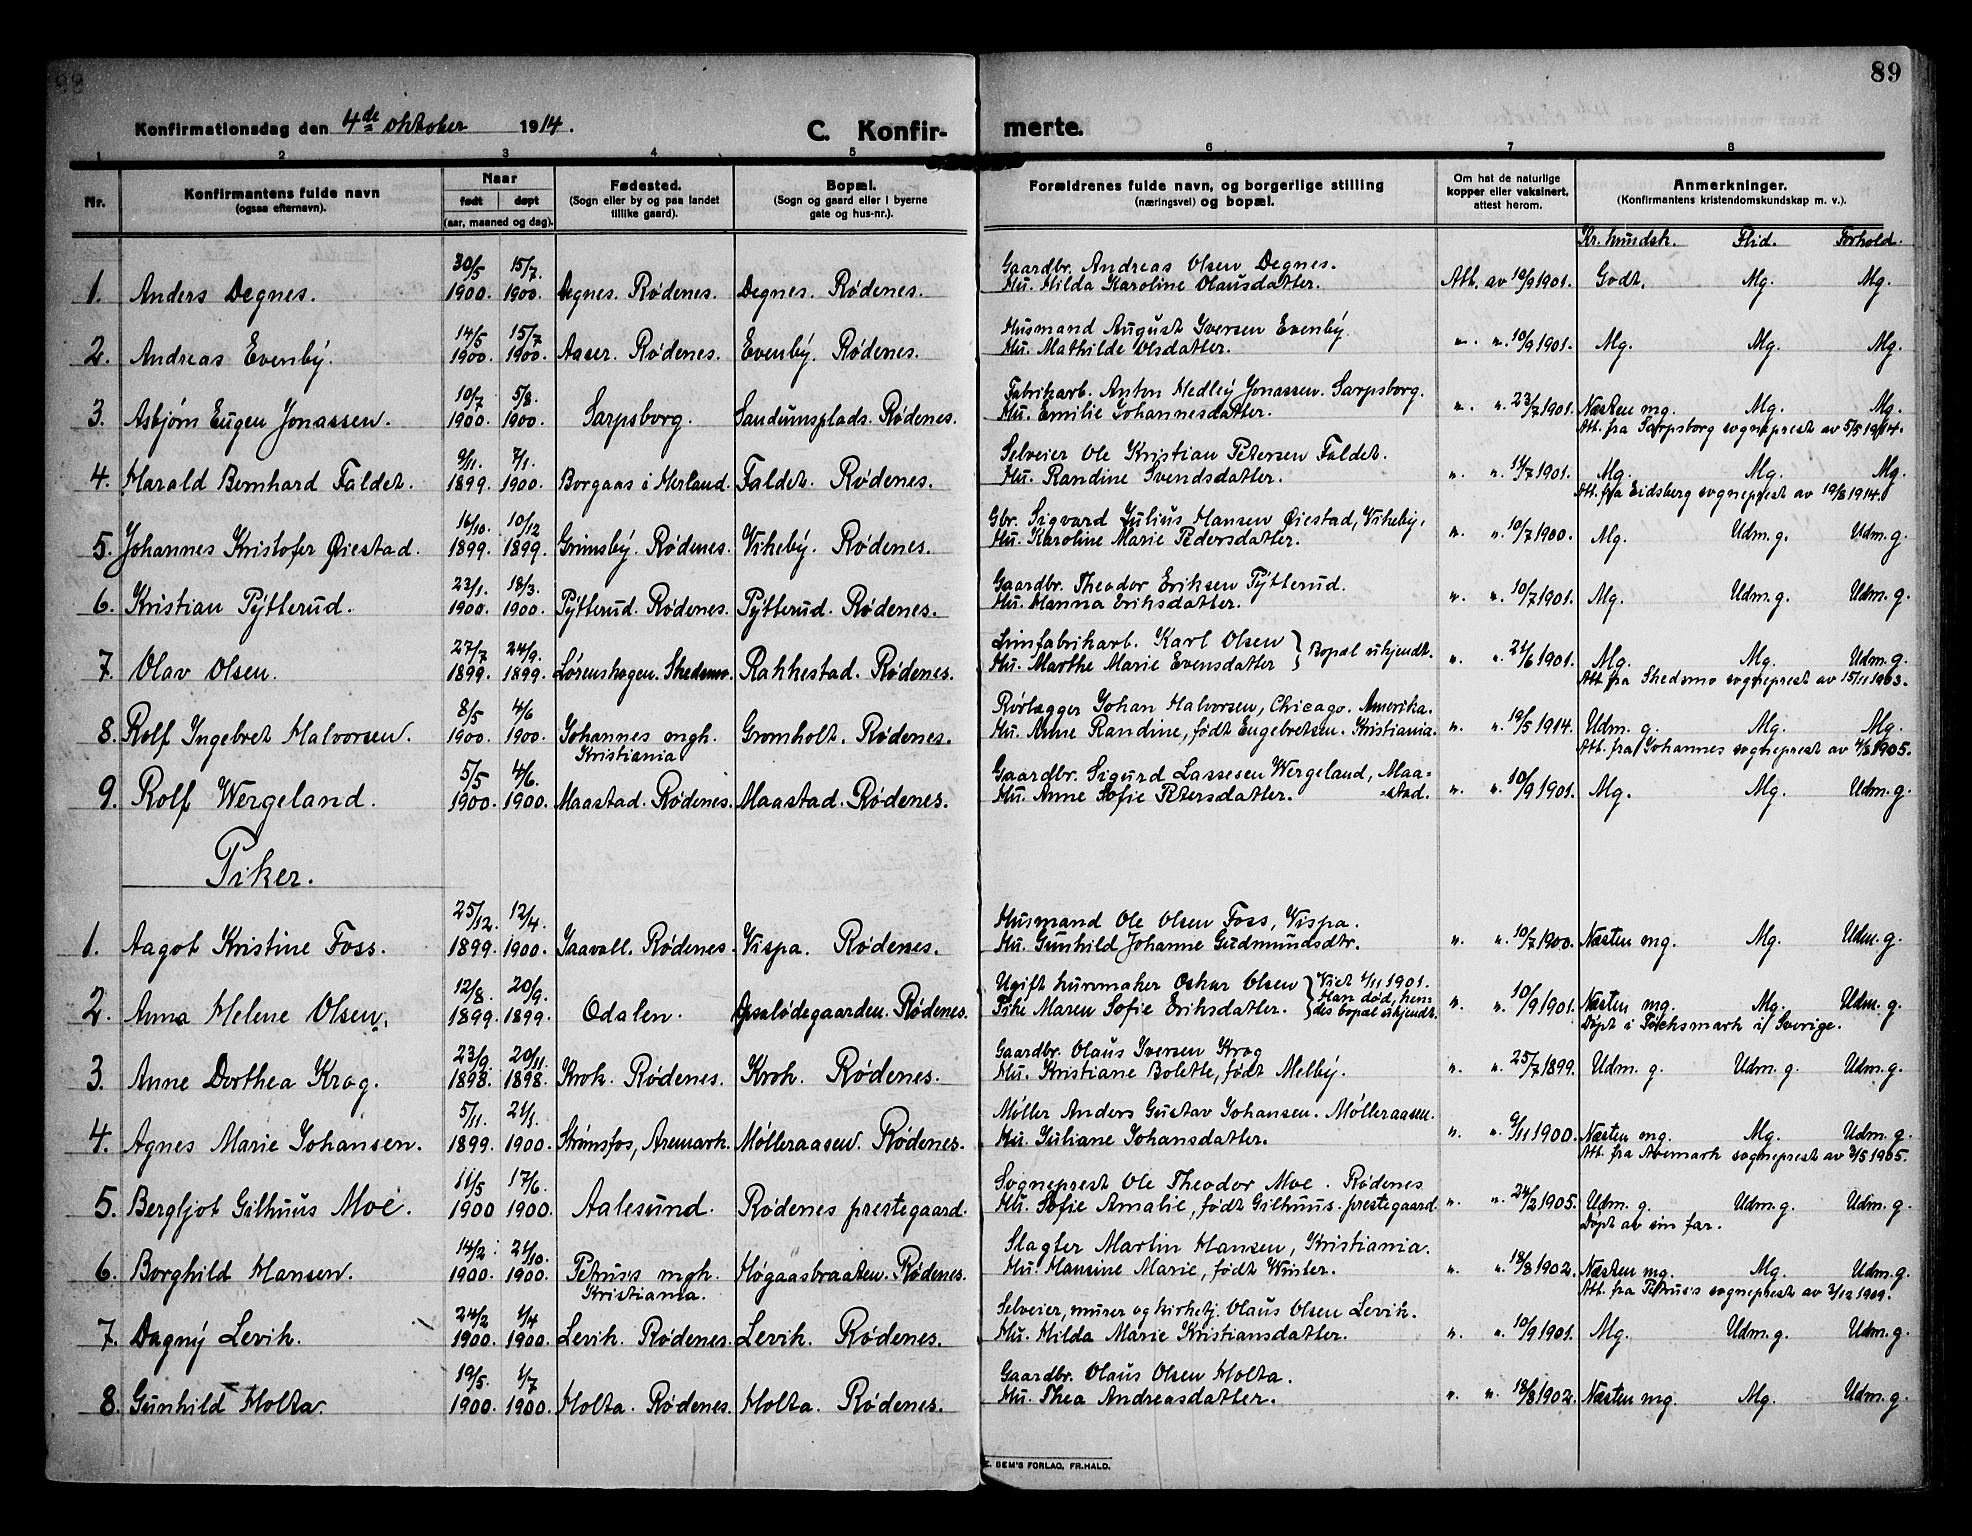 89
Konfirmationsdag den 4de oktober 1914.
C. Konfirmerte.
1 2 3 4 5 6 7 8
Nr.
Konfirmantens fulde navn
(ogsaa efternavn).
Naar
født døpt
(aar, maaned og dag).
Fødested.
(Sogn eller by og paa landet
tillike gaard).
Bopæl.
(Sogn og gaard eller i byerne
gate og hus-nr.).
Forældrenes fulde navn, og borgerlige stilling
(næringsvei) og bopæl.
Om hat de naturlige
kopper eller vaksinert,
attest herom.
Anmerkninger.
(Konfirmantens kristendomskundskap m. v.).
Kr. kundsk. Flid. Forhold.
30/5 15/7 Gaardbr. Andreas Olsen Degnes.
1. Anders Degnes. 1900. 1900. Degnes. Rødenes. Degnes. Rødenes. Hu. Hilda Karoline Olausdatter. Att. av 10/9 1901. Godt. Mg. Mg.
14/5 15/7 Husmand August Iversen Evenby.
2. Andreas Evenby. 1900. 1900. Aaser. Rødenes. Evenby. Rødenes. Hu. Mathilde Olsdatter. " " 10/9 1901. Mg. Mg. Mg.
10/7 5/8. Fabrikarb. Anton Hedley Jonassen. Sarpsborg.
3. Asbjørn Eugen Jonassen. 1900. 1900. Sarpsborg. Sandumsplads. Rødenes. Hu. Emilie Johannesdatter. " " 23/7 1901. Næsten mg. Mg. Mg.
Att. fra Sarpsborg sogneprest av 5/5 1914.
9/11. 7/1. Selveier Ole Kristian Petersen Faldet.
4. Harald Bernhard Faldet. 1899. 1900. Borgaas i Herland. Faldet. Rødenes. Hu. Randine Svendsdatter. " " 11/7 1901. Mg. Mg. Mg.
Att. fra Eidsberg sogneprest av 19/8 1914.
16/10. 10/12 Gbr. Sigvard Julius Hansen Øiestad, Vikeby.
5. Johannes Kristofer Øiestad. 1899. 1899. Grimsby. Rødenes. Vikeby. Rødenes. Hu. Karoline Marie Pedersdatter. " " 10/7 1900. Mg. Udm. g. Udm. g
23/1. 18/3. Gaardbr. Theodor Eriksen Tytterud.
6. Kristian Tytterud. 1900. 1900. Tytterud. Rødenes. Tytterud. Rødenes. Hu. Hanna Eriksdatter. " " 10/7 1901. Mg. Udm. g. Udm. g
27/7 24/9. Limfabrikarb. Karl Olsen } Bopæl ukjendt.
7. Olav Olsen. 1899. 1899. Lørenskogen. Skedsmo. Rakkestad. Rødenes. Hu. Marthe Marie Evensdatter " " 21/6 1901. Mg. Mg. Udm. g.
Att. fra Skedsmo sogneprest av 15/11 1903.
8/5 4/6 Rørlægger Johan Halvorsen, Chicago. Amerika.
8. Rolf Ingebret Halvorsen. 1900. 1900. Johannes mgh. Gromholt. Rødenes. Hu. Anne Randine, født Engebretsen. Kristiania. " " 19/5 1914. Udm. g. Mg. Mg.
Kristiania Att. fra Johannes sogneprest av 4/8 1905.
5/5 4/6. Gaardbr. Sigurd Lassesen Wergeland, Maa=
9. Rolf Wergeland. 1900. 1900. Maastad. Rødenes. Maastad. Rødenes. Hu. Anne Sofie Petersdatter. =stad. " " 10/9 1901. Mg. Mg. Udm. g
Piker.
25/12. 12/4. Husmand Ole Olsen Foss, Vispa.
1. Aagot Kristine Foss. 1899. 1900. Jaavall. Rødenes. Vispa. Rødenes. Hu. Gunhild Johanne Gudmundsdtr. " " 10/7 1900. Næsten mg. Mg. Udm. g.
12/8. 20/9. Ugift kurvmaker Oskar Olsen } Viet 1/11 1901.
2. Anna Helene Olsen. 1899. 1899. Odalen. Rødenes. Pike Maren Sofie Eriksdatter. Han død, hen=
des bopæl ukjendt. " " 10/9 1901. Næsten mg. Mg. Udm. g
Døpt i Töcksmark i Sverige.
23/9. 20/11. Gaardbr. Olaus Iversen Krog
3. Anne Dorthea Krog. 1898. 1898. Krok. Rødenes. Krok. Rødenes. Hu. Kristiane Bolette, født Melby. " " 25/7 1899. Udm. g. Udm. g. Udm. g
5/11. 21/1. Møller Anders Gustav Johansen. Mølleraasen.
4. Agnes Marie Johansen. 1899. 1900. Strømsfos, Aremark. Mølleraasen. Rødenes. Hu. Juliane Johansdatter. " " 9/11 1900. Næsten mg. Mg. Udm. g.
Att. fra Aremark sogneprest av 2/5 1905.
11/5 17/6. Sogneprest Ole Theodor Moe. Rødenes
5. Bergljot Gilhuus Moe. 1900 1900. Aalesund. Rødenes prestegaard. Hu. Sofie Amalie, født Gilhuus. prestegaard. " " 24/2 1905. Udm. g. Udm. g. Udm. g
Døpt av sin far.
14/2. 21/10. Slagter Martin Hansen, Kristiania.
6. Borghild Hansen. 1900. 1900. Petrus's mgh. Høgaasbraaten. Rødenes. Hu. Hansine Marie, født Winter. " " 18/8 1902. Næsten mg. Mg. Udm. g.
Kristiania. Att. fra Petrus's sogneprest av 2/12 1909.
24/2 1/4 Selveier, murer og kirketj. Olaus Olsen Levik.
7. Dagny Levik. 1900. 1900. Levik. Rødenes. Levik. Rødenes. Hu. Hilda Marie Kristiansdatter. " " 10/9 1901. Mg. Udm. g. Udm. g
19/5. 1/7 Gaardbr. Olaus Olsen Holta.
8. Gunhild Holta. 1900. 1900. Holta. Rødenes. Holta. Rødenes. Hu. Thea Andreasdatter. " " 18/8 1902. Næsten mg. Mg. Udm. g.
E. SEM'S FORLAG, FR.HALD.